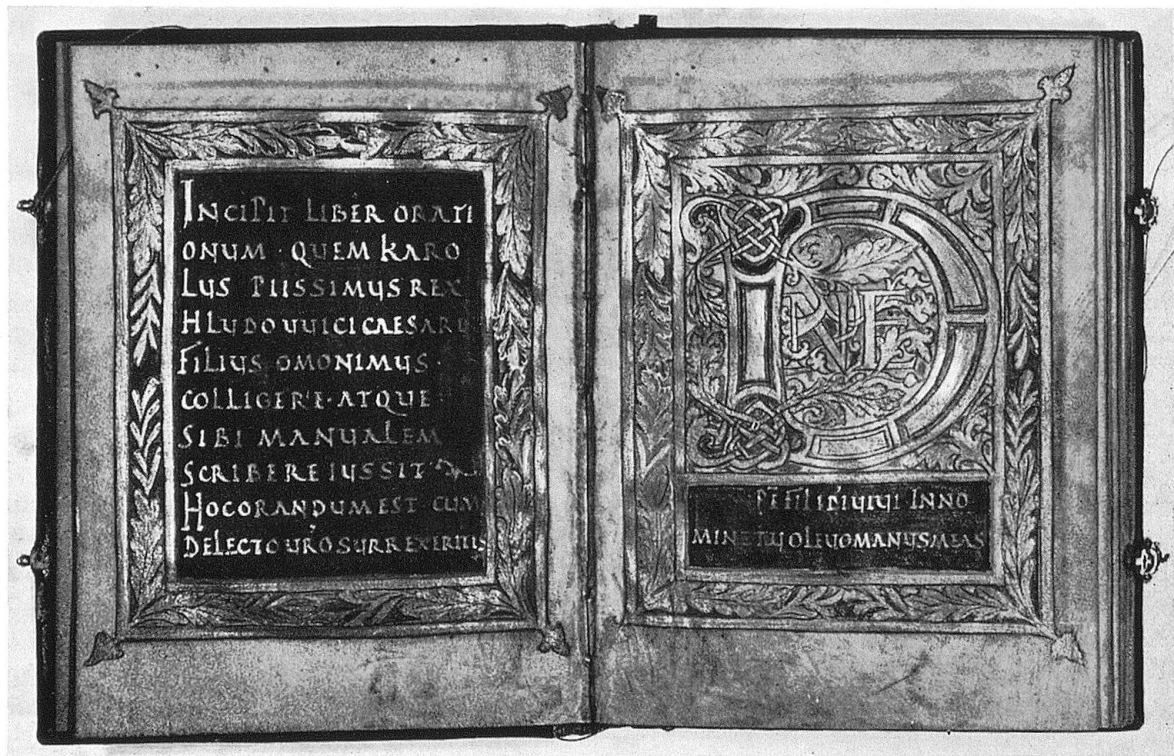 INCIPIT LIBER ORATI
ONUM · QUEM KARO
LUS PIISSIMUS REX
HLUDOUUICI CAESARIS
FILIUS OMONIMUS ·
COLLIGERE · ATQUE
SIBI MANUALEM
SCRIBERE IUSSIT
HOC ORANDUM EST CUM
DE LECTO URO SURREXERITIS
DNE
INNO
MINE TUO LEUO MANUS MEAS